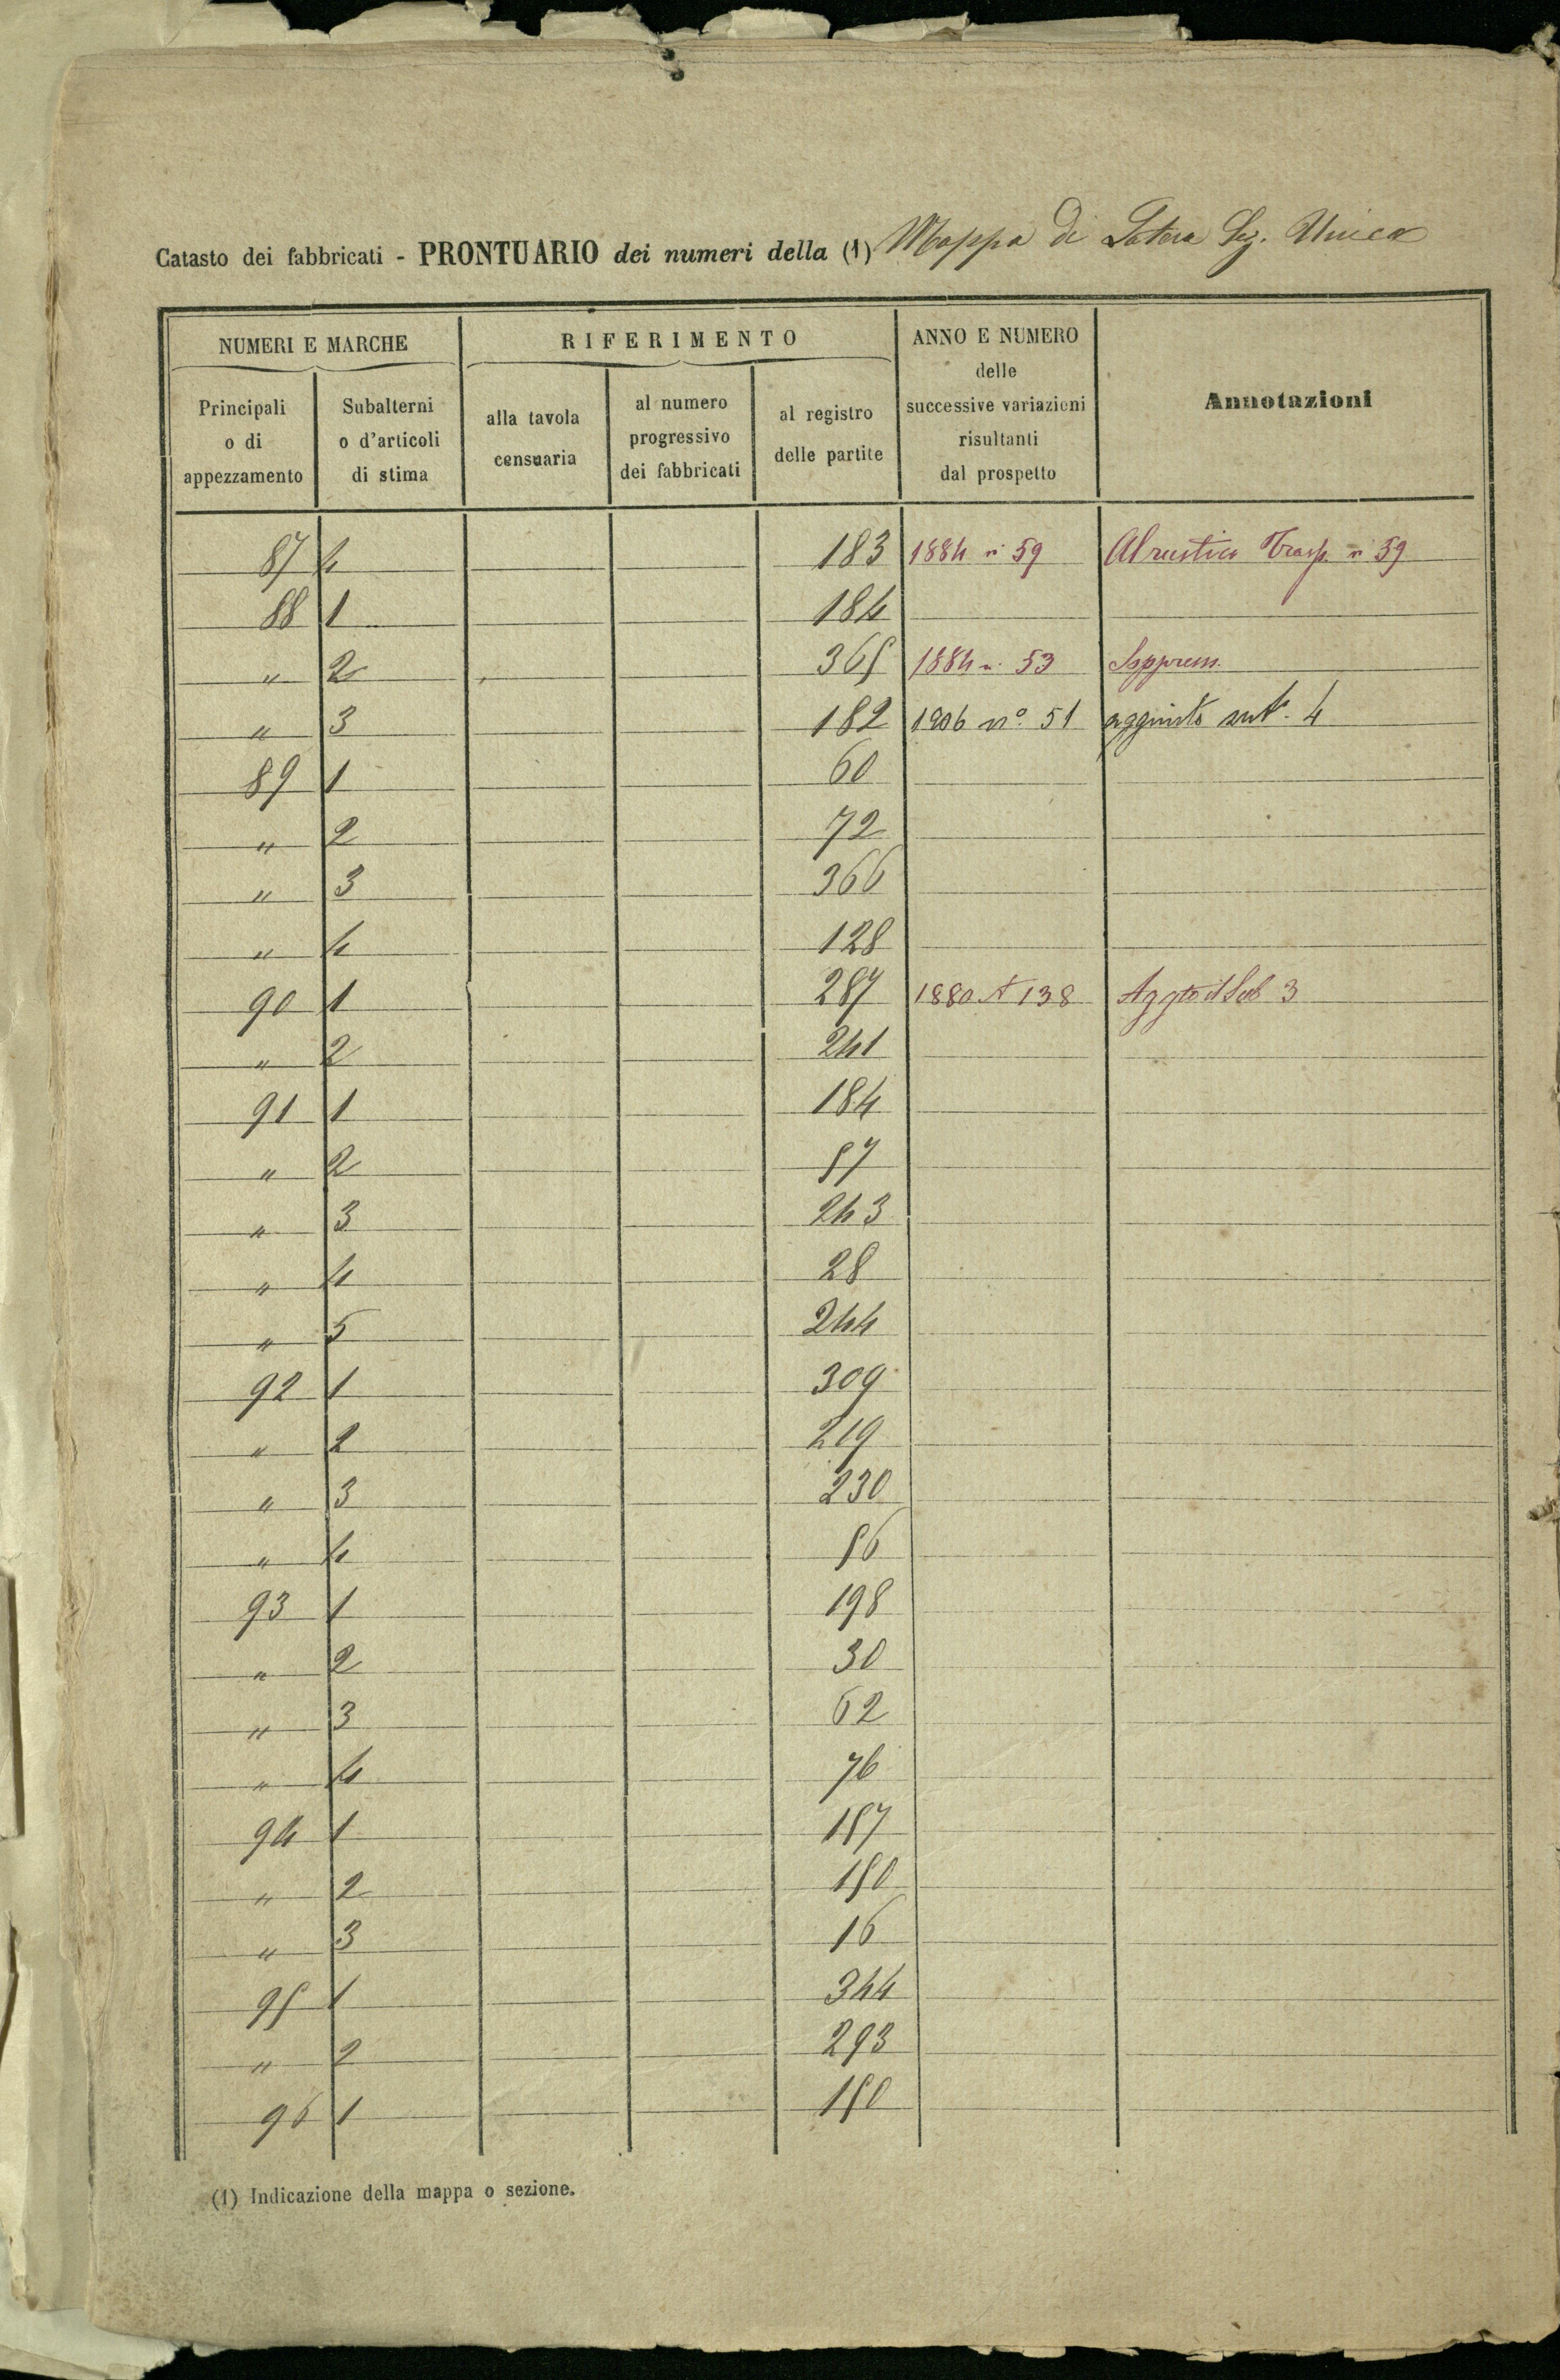 Catasto dei fabbricati - PRONTUARIO dei numeri della (1) Mappa di Latera Sez. Unica
NUMERI E MARCHE
RIFERIMENTO
ANNO E NUMERO
delle
successive variazioni
risultanti
dal prospetto
Annotazioni
Principali
o di
appezzamento
Subalterni
o d'articoli
di stima
alla tavola
censuaria
al numero
progressivo
dei fabbricati
al registro
delle partite
87 4 183 1884 n 59 Al rustico Trasp. n 59
88 1 184
" 2 365 1884 n. 53 Soppress.
" 3 182 1906 n° 51 aggiunto sub. 4
89 1 60
" 2 72
" 3 366
" 4 128
90 1 287 1880 N 138 Aggto il Sub 3
" 2 241
91 1 184
" 2 57
" 3 243
" 4 28
" 5 244
92 1 309
" 2 219
" 3 230
" 4 56
93 1 198
" 2 30
" 3 62
" 4 76
94 1 157
" 2 150
" 3 16
95 1 344
" 2 293
96 1 150
(1) Indicazione della mappa o sezione.